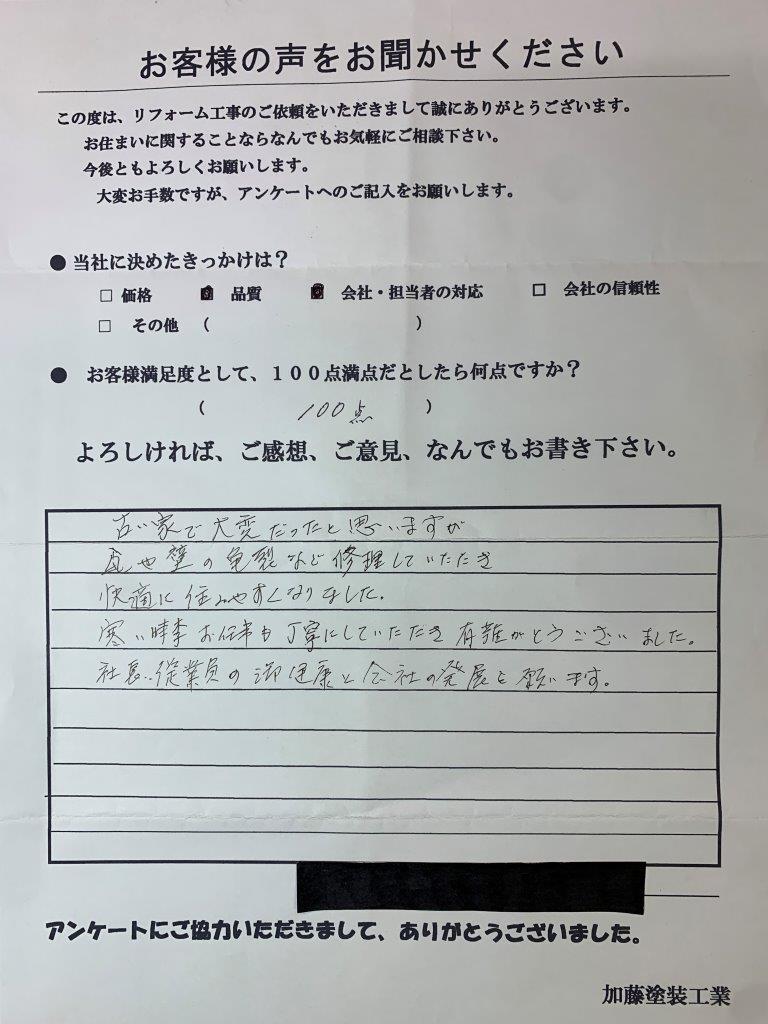 お客様の声をお聞かせください
この度は、リフォーム工事のご依頼をいただきまして誠にありがとうございます。
お住まいに関することならなんでもお気軽にご相談下さい。
今後ともよろしくお願いします。
大変お手数ですが、アンケートへのご記入をお願いします。
● 当社に決めたきっかけは？
□ 価格 ■ 品質 ■ 会社・担当者の対応 □ 会社の信頼性
□ その他 （ ）
● お客様満足度として、１００点満点だとしたら何点ですか？
（ 100点 ）
よろしければ、ご感想、ご意見、なんでもお書き下さい。
古い家で大変だったと思いますが
瓦や壁の亀裂など修理していただき
快適に住みやすくなりました。
寒い時季お仕事も丁寧にしていただき有難がとうございました。
社長、従業員の御健康と会社の発展を願います。
アンケートにご協力いただきまして、ありがとうございました。
加藤塗装工業